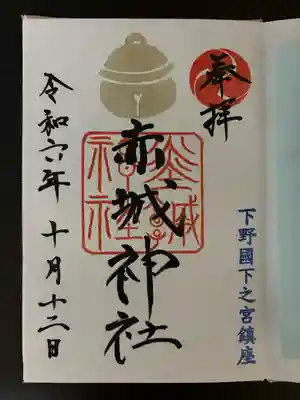 奉拝
下野國下之宮鎮座
赤城神社
赤城神社
令和六年 十月十二日